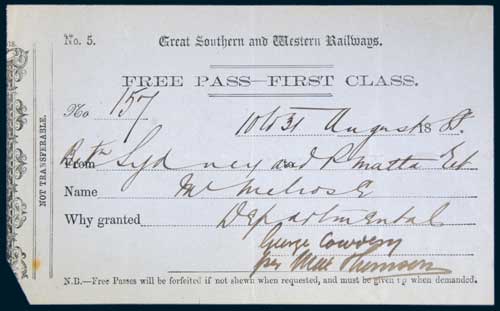 No. 5. Great Southern and Western Railways.
FREE PASS—FIRST CLASS.
No 157
10 to 31 August 188
From Sydney and P.matta
Name Mr Melrose
Why granted Departmental
George Cowdery
per
N.B.—Free Passes will be forfeited if not shewn when requested, and must be given up when demanded.
NOT TRANSFERABLE.